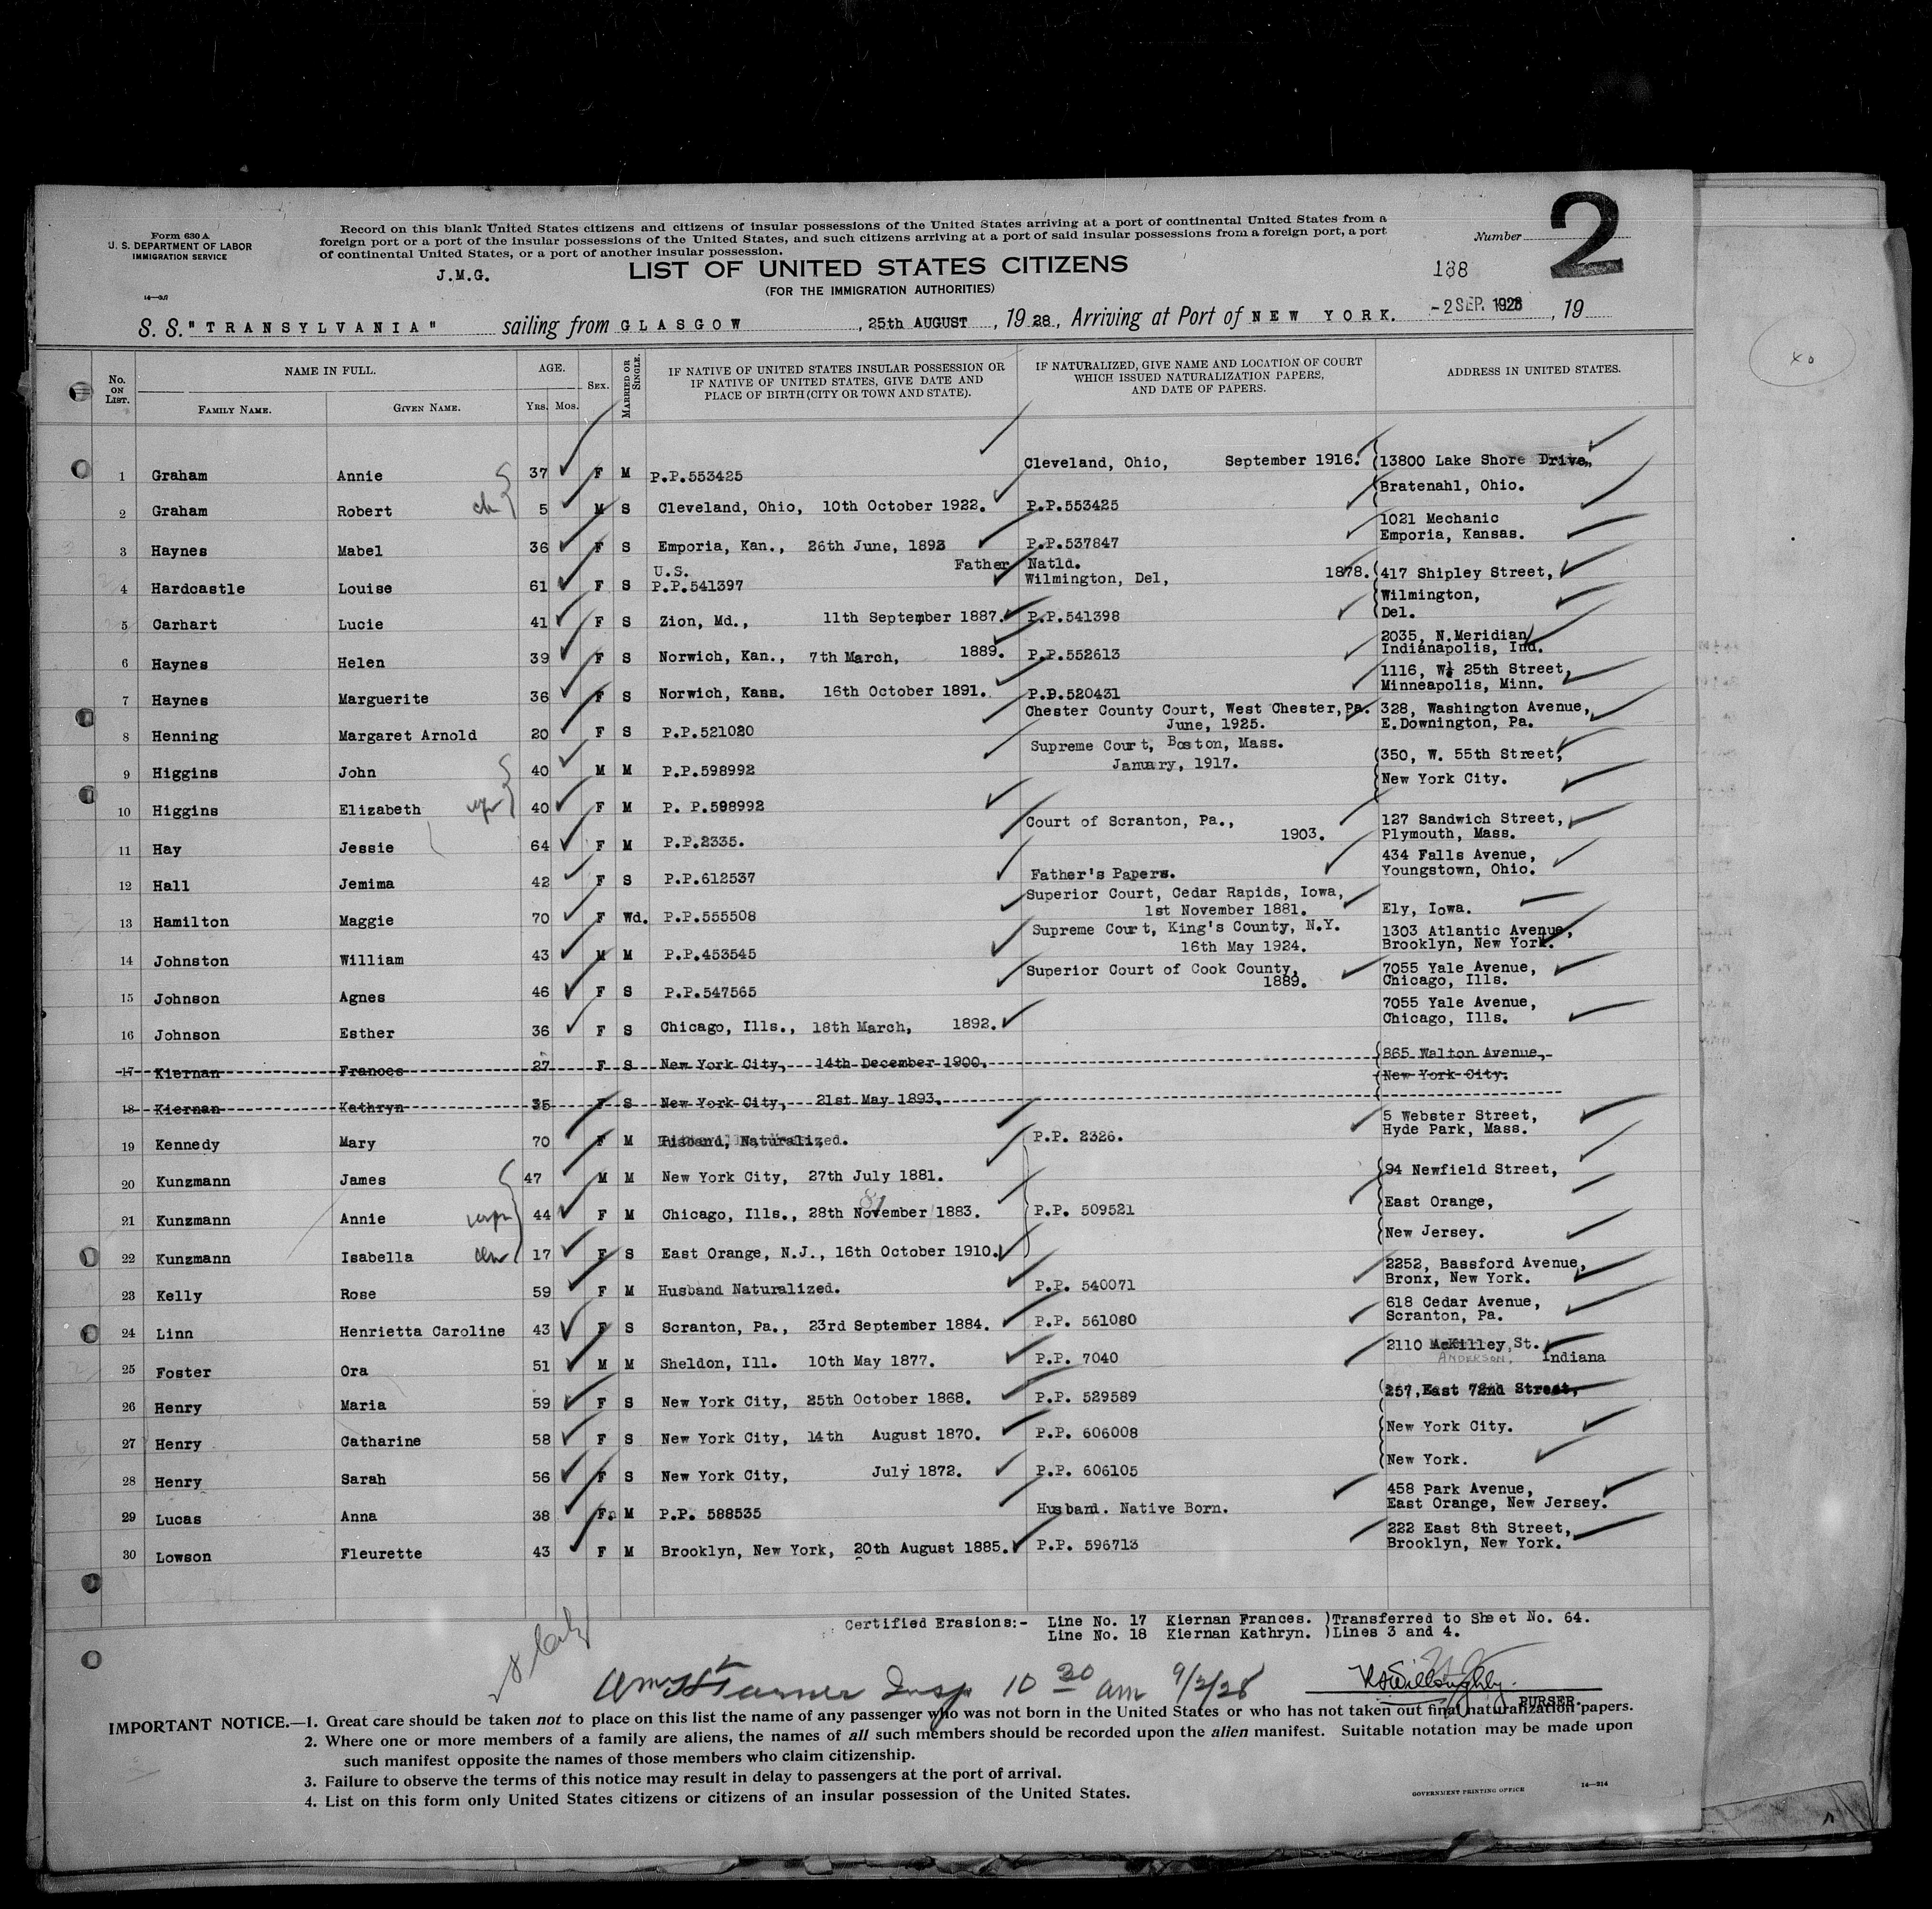 Form 630 A
U. S. DEPARTMENT OF LABOR
IMMIGRATION SERVICE
Record on this blank United States citizens and citizens of insular possessions of the United States arriving at a port of continental United States from a
foreign port or a port of the insular possessions of the United States, and such citizens arriving at a port of said insular possessions from a foreign port, a port
of continental United States, or a port of another insular possession.
Number 2
J.M.G. LIST OF UNITED STATES CITIZENS 188
(FOR THE IMMIGRATION AUTHORITIES)
S. S. "TRANSYLVANIA" sailing from GLASGOW, 25th AUGUST, 19 28, Arriving at Port of NEW YORK. -2 SEP. 1928, 19
No. ON LIST. NAME IN FULL. AGE. SEX. MARRIED OR SINGLE. IF NATIVE OF UNITED STATES INSULAR POSSESSION OR IF NATIVE OF UNITED STATES, GIVE DATE AND PLACE OF BIRTH (CITY OR TOWN AND STATE). IF NATURALIZED, GIVE NAME AND LOCATION OF COURT WHICH ISSUED NATURALIZATION PAPERS, AND DATE OF PAPERS. ADDRESS IN UNITED STATES.
FAMILY NAME. GIVEN NAME. YRS. MOS.
1 Graham Annie 37 F M P.P.553425 Cleveland, Ohio, September 1916. (13800 Lake Shore Drive,
(Bratenahl, Ohio.
2 Graham Robert ch 5 M S Cleveland, Ohio, 10th October 1922. P.P.553425
3 Haynes Mabel 36 F S Emporia, Kan., 26th June, 1892 P.P.537847 1021 Mechanic
Emporia, Kansas.
4 Hardcastle Louise 61 F S U.S. P.P.541397 Father Natld.
Wilmington, Del, 1878. (417 Shipley Street,
(Wilmington,
(Del.
5 Carhart Lucie 41 F S Zion, Md., 11th September 1887. P.P.541398
6 Haynes Helen 39 F S Norwich, Kan., 7th March, 1889. P.P.552613 2035, N.Meridian
Indianapolis, Ind.
7 Haynes Marguerite 36 F S Norwich, Kans. 16th October 1891. P.P.520431 1116, W. 25th Street,
Minneapolis, Minn.
8 Henning Margaret Arnold 20 F S P.P.521020 Chester County Court, West Chester, Pa.
June, 1925. 328, Washington Avenue,
E.Downington, Pa.
9 Higgins John 40 M M P.P.598992 Supreme Court, Boston, Mass.
January, 1917. (350, W. 55th Street,
(New York City.
10 Higgins Elizabeth 40 F M P. P.598992
11 Hay Jessie 64 F M P.P.2335. Court of Scranton, Pa.,
1903. 127 Sandwich Street,
Plymouth, Mass.
12 Hall Jemima 42 F S P.P.612537 Father's Papers. 434 Falls Avenue,
Youngstown, Ohio.
13 Hamilton Maggie 70 F Wd. P.P.555508 Superior Court, Cedar Rapids, Iowa,
1st November 1881. Ely, Iowa.
14 Johnston William 43 M M P.P.453545 Supreme Court, King's County, N.Y.
16th May 1924. 1303 Atlantic Avenue,
Brooklyn, New York.
15 Johnson Agnes 46 F S P.P.547565 Superior Court of Cook County,
1889. 7055 Yale Avenue,
Chicago, Ills.
16 Johnson Esther 36 F S Chicago, Ills., 18th March, 1892. 7055 Yale Avenue,
Chicago, Ills.
17 Kiernan Frances 27 F S New York City, 14th December 1900. (865 Walton Avenue,
(New York City.
18 Kiernan Kathryn 35 F S New York City, 21st May 1893.
19 Kennedy Mary 70 F M Husband, Naturalized. P.P. 2326. 5 Webster Street,
Hyde Park, Mass.
20 Kunzmann James 47 M M New York City, 27th July 1881. (94 Newfield Street,
21 Kunzmann Annie 44 F M Chicago, Ills., 28th November 1883. P.P. 509521 (East Orange,
(New Jersey.
22 Kunzmann Isabella 17 F S East Orange, N.J., 16th October 1910.
23 Kelly Rose 59 F M Husband Naturalized. P.P. 540071 2252, Bassford Avenue,
Bronx, New York.
24 Linn Henrietta Caroline 43 F S Scranton, Pa., 23rd September 1884. P.P. 561080 618 Cedar Avenue,
Scranton, Pa.
25 Foster Ora 51 M M Sheldon, Ill. 10th May 1877. P.P. 7040 2110 McKilley, St.
ANDERSON, Indiana
26 Henry Maria 59 F S New York City, 25th October 1868. P.P. 529589 (257, East 72nd Street,
27 Henry Catharine 58 F S New York City, 14th August 1870. P.P. 606008 (New York City.
28 Henry Sarah 56 F S New York City, July 1872. P.P. 606105 (New York.
29 Lucas Anna 38 F. M P.P. 588535 Husband. Native Born. 458 Park Avenue,
East Orange, New Jersey.
30 Lowson Fleurette 43 F M Brooklyn, New York, 20th August 1885. P.P. 596713 222 East 8th Street,
Brooklyn, New York.
Certified Erasions:- Line No. 17 Kiernan Frances. )Transferred to Sheet No. 64.
Line No. 18 Kiernan Kathryn. )Lines 3 and 4.
Turner Insp 10 30 am 9/2/28
PURSER.
IMPORTANT NOTICE.—1. Great care should be taken not to place on this list the name of any passenger who was not born in the United States or who has not taken out final naturalization papers.
2. Where one or more members of a family are aliens, the names of all such members should be recorded upon the alien manifest. Suitable notation may be made upon
such manifest opposite the names of those members who claim citizenship.
3. Failure to observe the terms of this notice may result in delay to passengers at the port of arrival.
4. List on this form only United States citizens or citizens of an insular possession of the United States.
GOVERNMENT PRINTING OFFICE 14—314